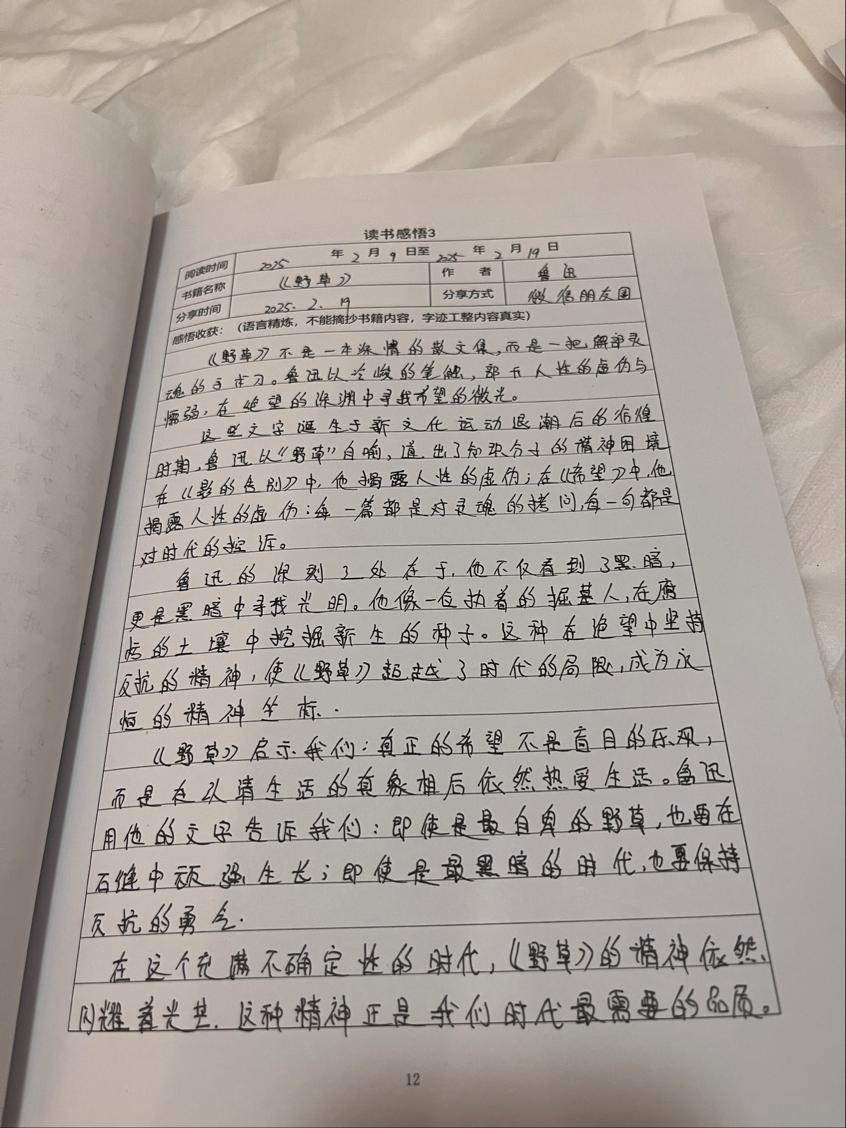 读书感悟3
阅读时间 2025 年 2 月 9 日至 2025 年 2 月 19 日
书籍名称 《野草》 作 者 鲁迅
分享时间 2025. 2. 19 分享方式 微信朋友圈
感悟收获：（语言精炼，不能摘抄书籍内容，字迹工整内容真实）
《野草》不是一本深情的散文集，而是一把解剖灵
魂的手术刀。鲁迅以冷峻的笔触，剖开人性的虚伪与
懦弱，在绝望的深渊中寻找希望的微光。
这些文字诞生于新文化运动退潮后的彷徨
时期，鲁迅以“野草”自喻，道出了知识分子的精神困境
在《影的告别》中，他揭露人性的虚伪；在《希望》中，他
揭露人性的虚伪；每一篇都是对灵魂的拷问，每一句都是
对时代的控诉。
鲁迅的深刻之处在于，他不仅看到了黑暗，
更是黑暗中寻找光明。他像一位执着的掘墓人，在腐
朽的土壤中挖掘新生的种子。这种在绝望中坚持
反抗的精神，使《野草》超越了时代的局限，成为永
恒的精神坐标.
《野草》启示我们：真正的希望不是盲目的乐观，
而是在认清生活的真象相后依然热爱生活。鲁迅
用他的文字告诉我们：即使是最自卑的野草，也要在
石缝中顽强生长；即使是最黑暗的时代，也要保持
反抗的勇气.
在这个充满不确定性的时代，《野草》的精神依然
闪耀着光芒. 这种精神正是我们时代最需要的品质。
12